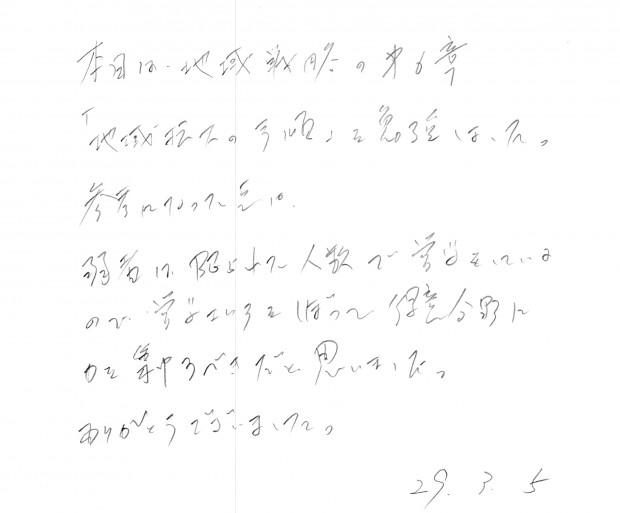 本日は、地域戦略の第6章
「地域拡大の手順」を勉強しました。
参考になった点は、
弱者は限られた人数で営業をしている
ので営業エリアをしぼって得意分野に
力を集中するべきだと思いました。
ありがとうございました。
29. 3. 5